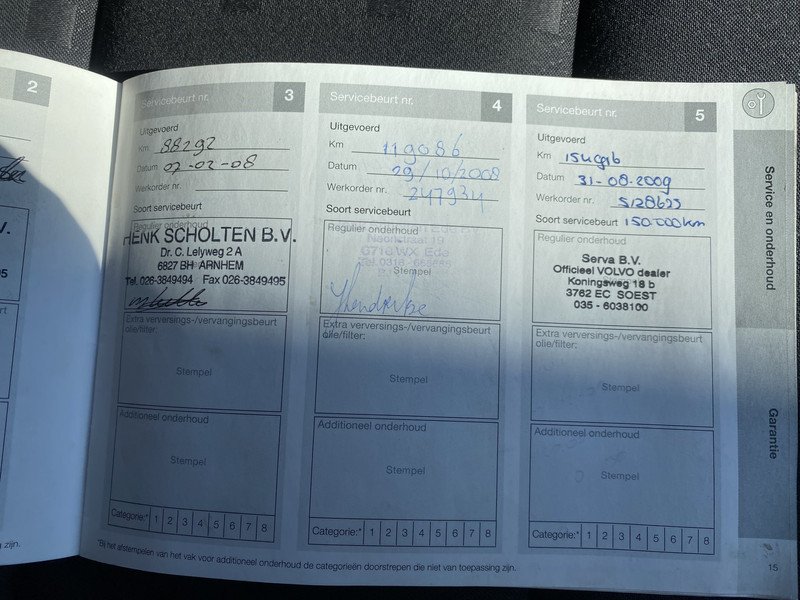 2
Servicebeurt nr. 3
Uitgevoerd
Km 88292
Datum 07-02-08
Werkorder nr.
Soort servicebeurt
Regulier onderhoud
HENK SCHOLTEN B.V.
Dr. C. Lelyweg 2 A
6827 BH ARNHEM
Tel. 026-3849494 Fax 026-3849495
Extra verversings-/vervangingsbeurt
olie/filter:
Stempel
Additioneel onderhoud
Stempel
Categorie:* 1 2 3 4 5 6 7 8
Servicebeurt nr. 4
Uitgevoerd
Km 119086
Datum 29/10/2008
Werkorder nr. 247934
Soort servicebeurt
Regulier onderhoud
6716 WX Ede
Stempel
Extra verversings-/vervangingsbeurt
olie/filter:
Stempel
Additioneel onderhoud
Stempel
Categorie:* 1 2 3 4 5 6 7 8
Servicebeurt nr. 5
Uitgevoerd
Km
Datum 31-08-2009
Werkorder nr. S128623
Soort servicebeurt 150.000km
Regulier onderhoud
Serva B.V.
Officieel VOLVO dealer
Koningsweg 18 b
3762 EC SOEST
035 - 6038100
Extra verversings-/vervangingsbeurt
olie/filter:
Stempel
Additioneel onderhoud
Stempel
Categorie:* 1 2 3 4 5 6 7 8
Service en onderhoud
Garantie
zijn.
*Bij het afstempelen van het vak voor additioneel onderhoud de categorieën doorstrepen die niet van toepassing zijn.
15